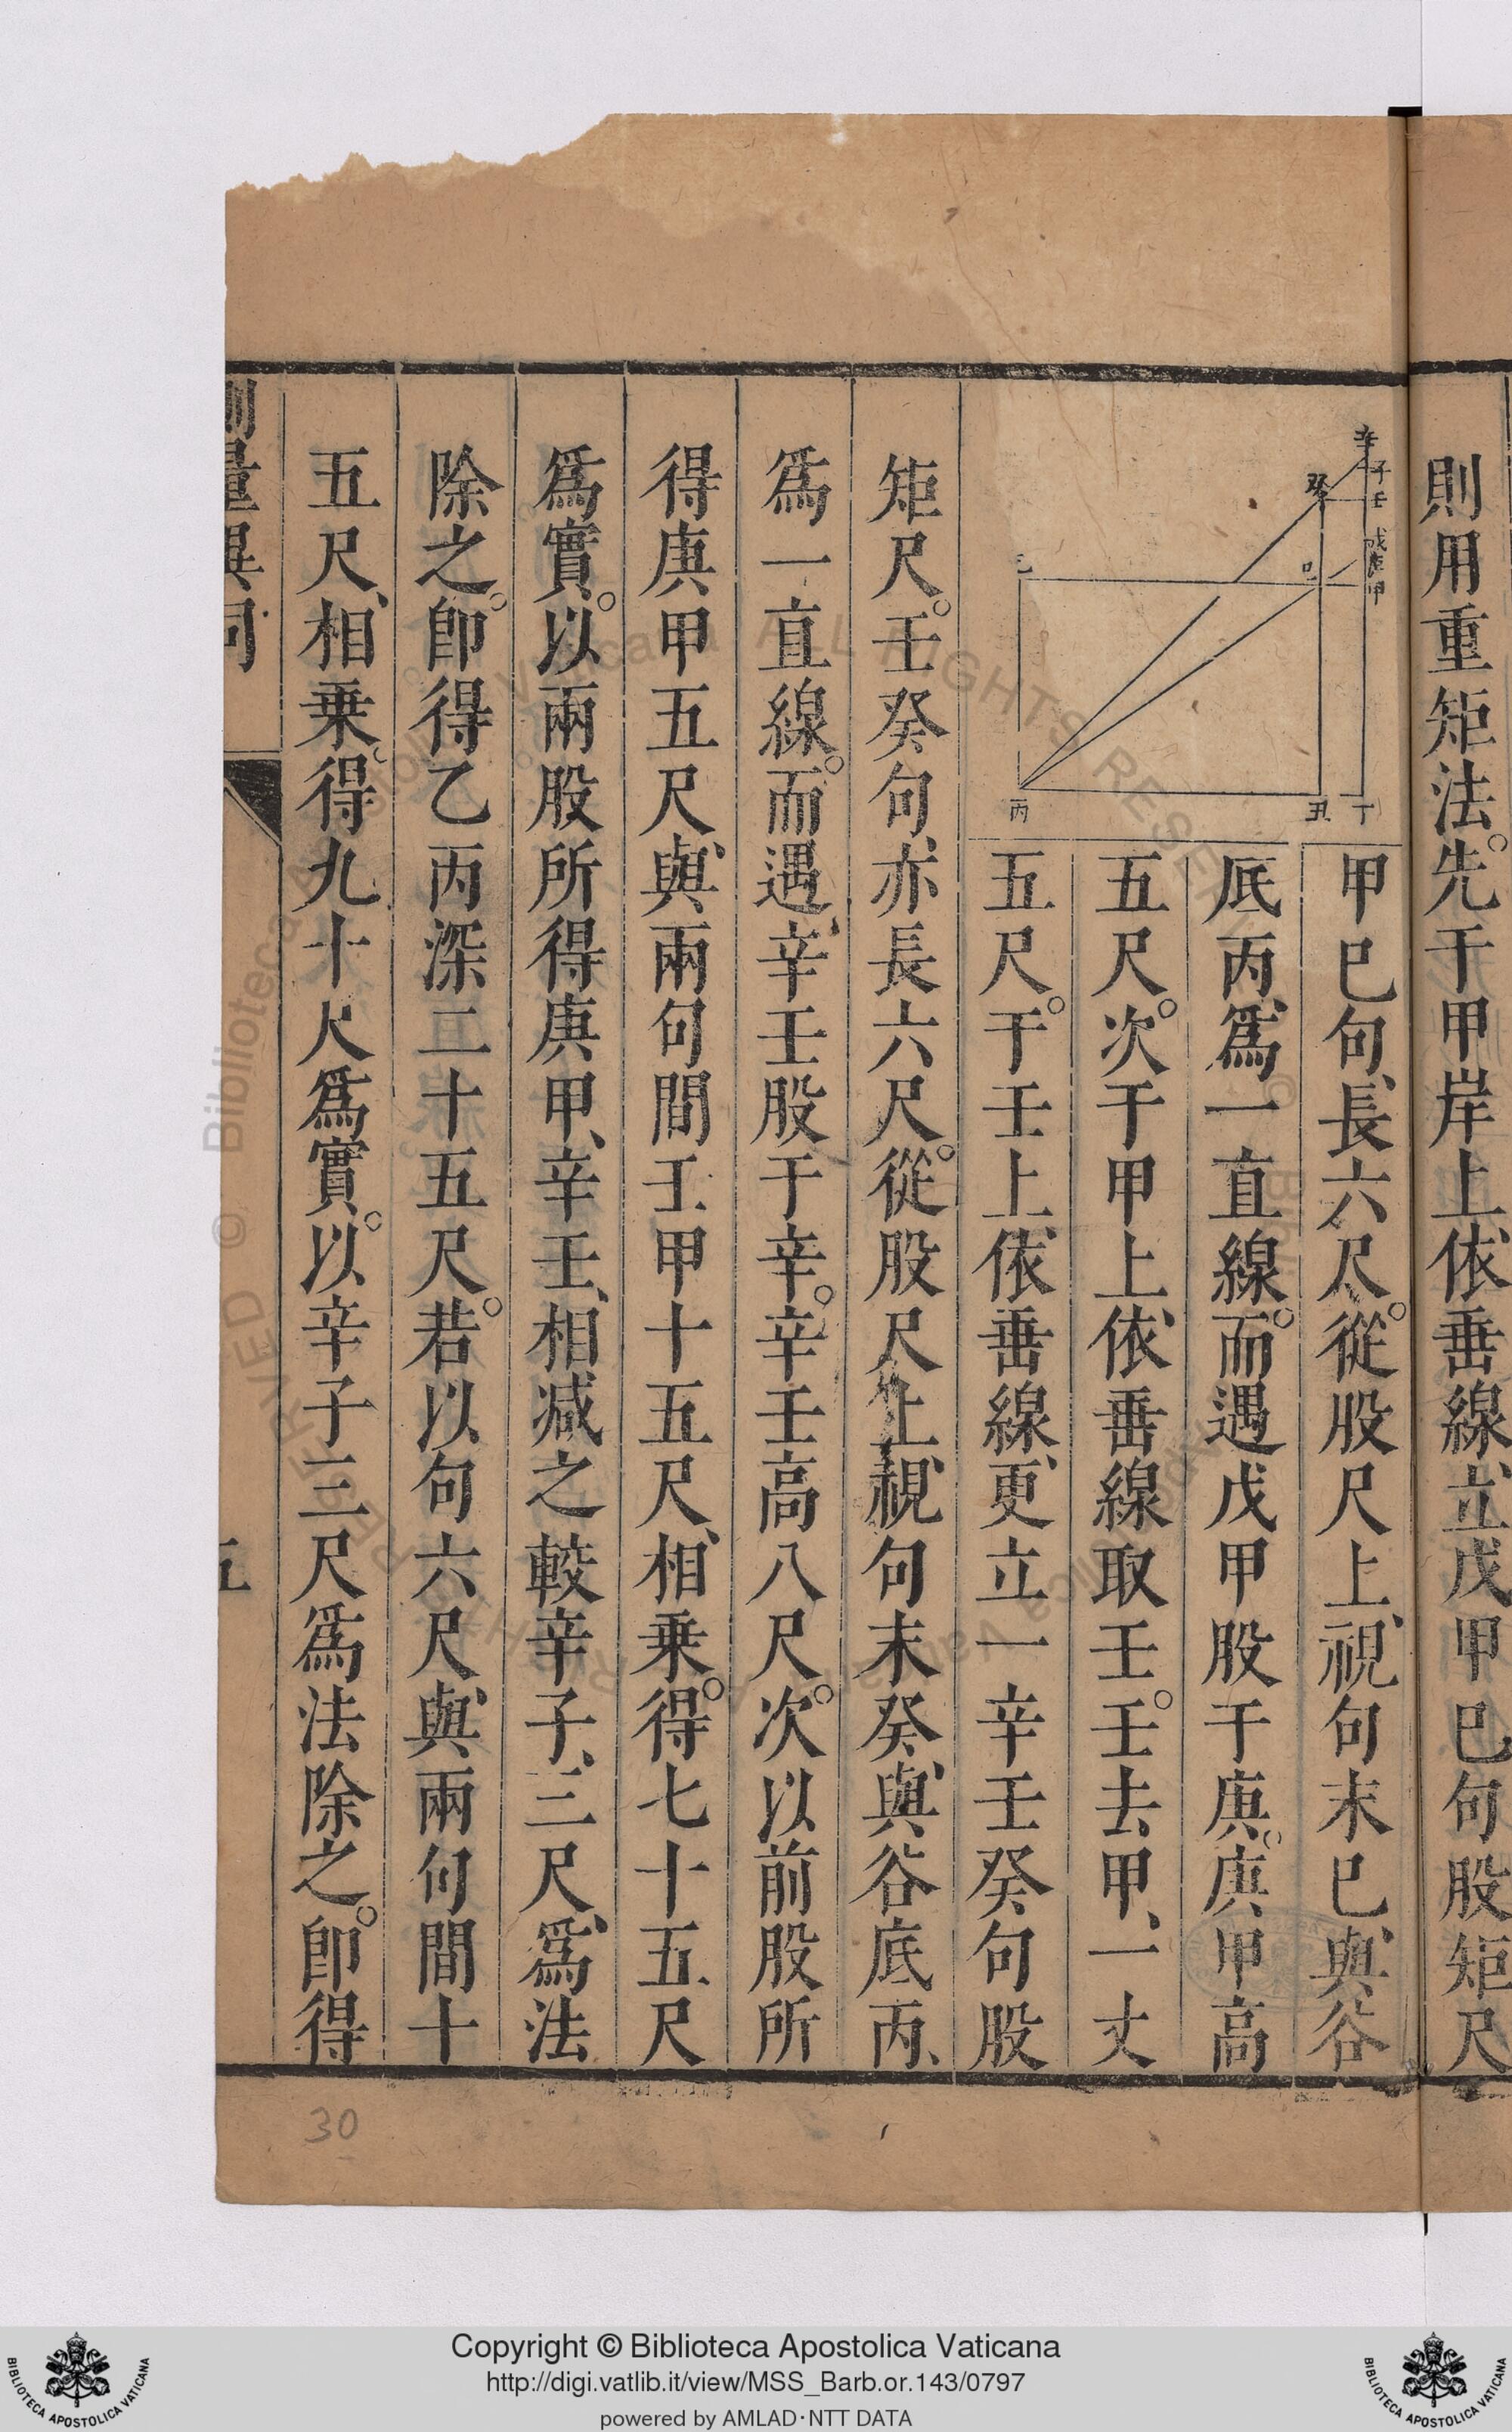 則用重矩法先于甲岸上依垂線立戊甲巳句股矩尺
甲巳句長六尺從股尺上視句末巳與谷
底丙爲一直線而遇戊甲股于庚庚甲高
五尺次于甲上依垂線取壬壬去甲一丈
五尺于壬上依垂線更立一辛壬癸句股
矩尺壬癸句亦長六尺從股尺上視句末癸與谷底丙
爲一直線而遇辛壬股于辛辛壬高八尺次以前股所
得庚甲五尺與兩句間壬甲十五尺相乗得七十五尺
爲實以兩股所得庚甲辛壬相减之較辛子三尺爲法
除之卽得乙丙深二十五尺若以句六尺與兩句間十
五尺相乗得九十尺爲實以辛子三尺爲法除之卽得
測量異同
五
辛
子
壬
癸
戊
庚
甲
乙
丙
丑
丁
30
Copyright © Biblioteca Apostolica Vaticana
http://digi.vatlib.it/view/MSS_Barb.or.143/0797
powered by AMLAD·NTT DATA
BIBLIOTECA APOSTOLICA VATICANA
BIBLIOTECA APOSTOLICA VATICANA